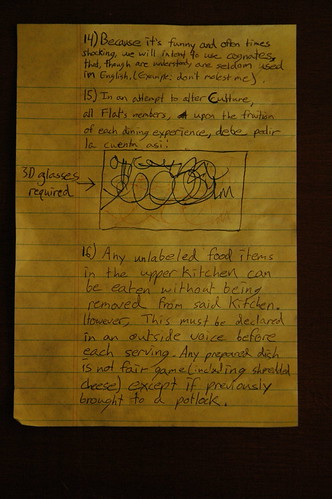 14) Because it's funny and often times
shocking, we will intent to use cognates,
that, though are understood, are seldom used
in English. (Example: don't molest me).
15) In an attempt to alter Culture,
all Flat's members, upon the fruition
of each dining experience, debe pedir
la cuenta asi:
3D glasses
required
16) Any unlabeled food items
in the upper kitchen can
be eaten without being
removed from said kitchen.
However, This must be declared
in an outside voice before
each serving. Any prepared dish
is not fair game (including shredded
cheese) except if previously
brought to a potlock.